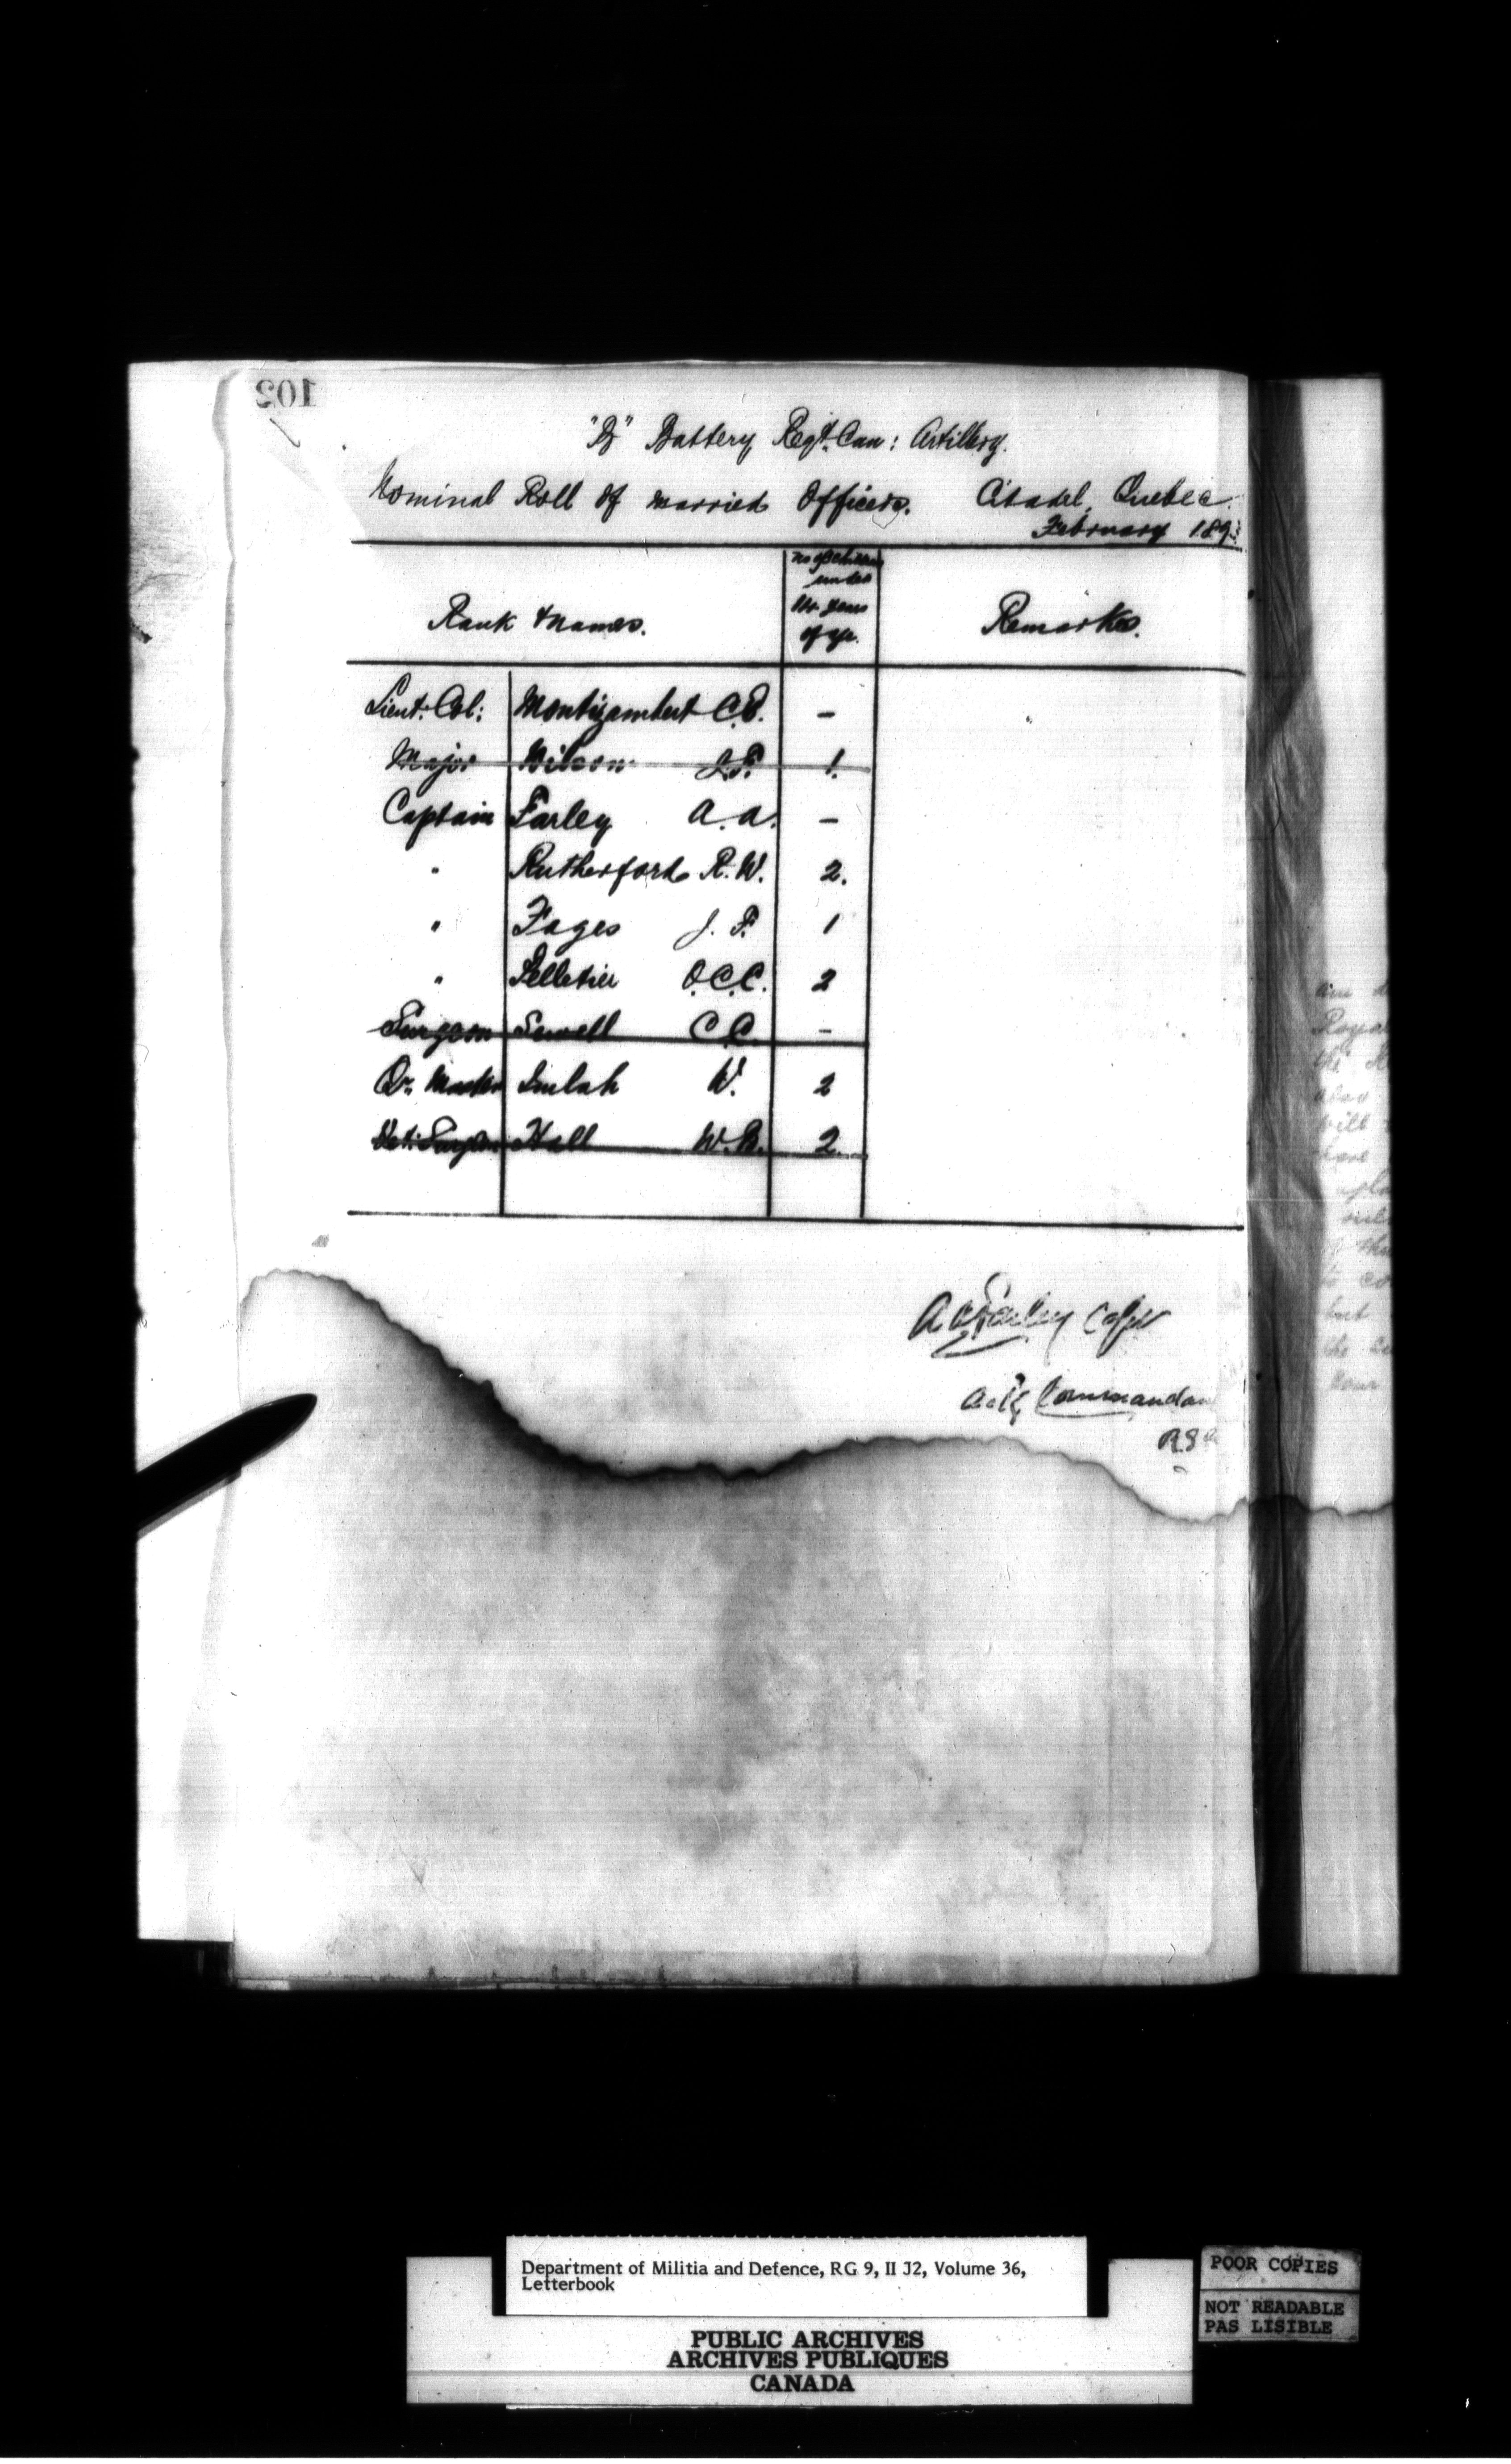 102
"B" Battery Regt. Can: Artillery.
Nominal Roll of married Officers. Citadel, Quebec
February 189
Rank & Names. No of Children under years of age. Remarks.
Lieut. Col: Montizambert C.E. –
Major Wilson J.F. 1.
Captain Farley A.A. –
" Rutherford R.W. 2.
" Fages J.F. 1
" Pelletier O.C.C. 2
Surgeon Sewell C.C. –
Qr. Master Imlah W. 2
Vet: Surgeon Hall W.B. 2.
A A Farley Capt
Actg Commandan
Department of Militia and Defence, RG 9, II J2, Volume 36,
Letterbook
PUBLIC ARCHIVES
ARCHIVES PUBLIQUES
CANADA
POOR COPIES
NOT READABLE
PAS LISIBLE